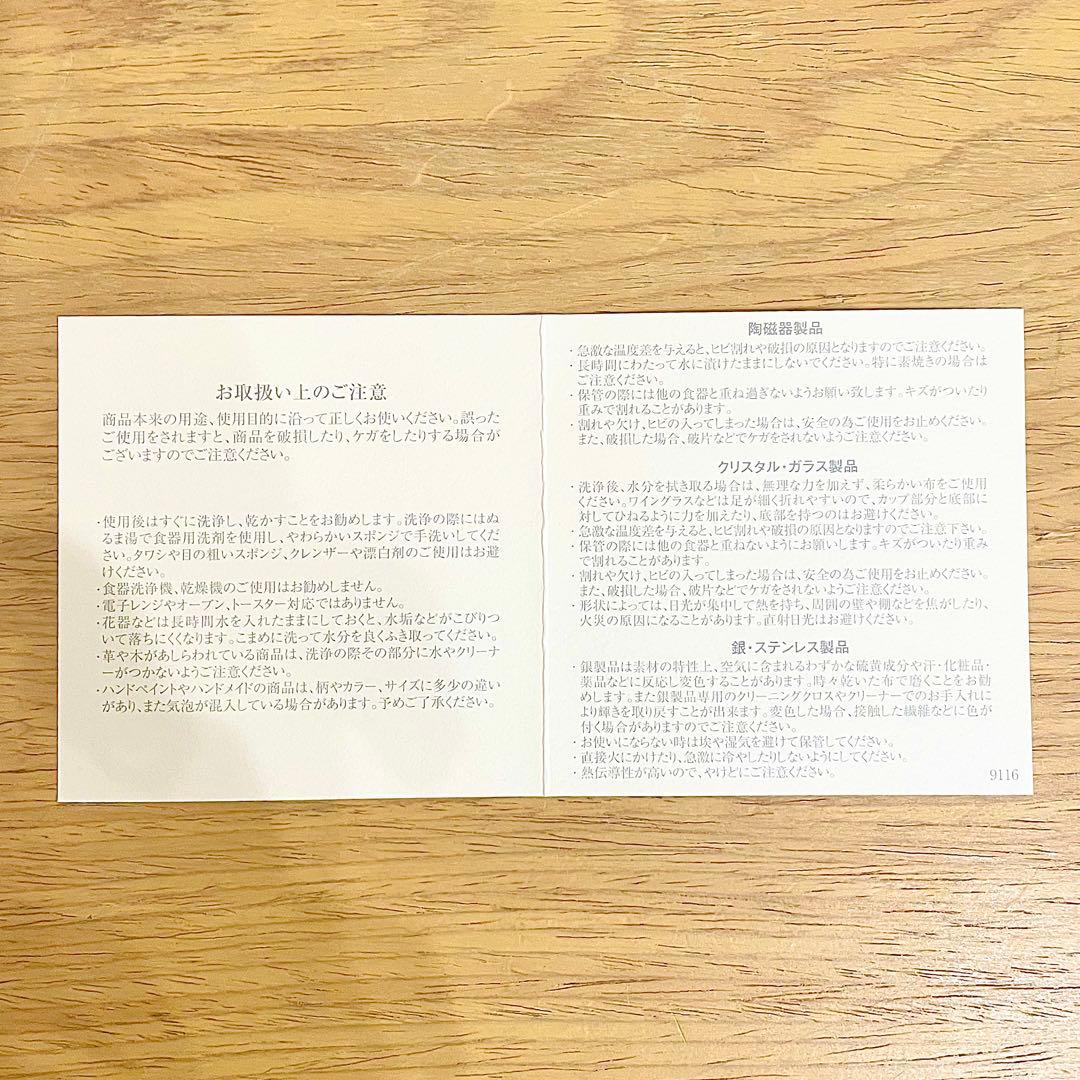 お取扱い上のご注意
商品本来の用途、使用目的に沿って正しくお使いください。誤った
ご使用をされますと、商品を破損したり、ケガをしたりする場合が
ございますのでご注意ください。
・使用後はすぐに洗浄し、乾かすことをお勧めします。洗浄の際にはぬ
るま湯で食器用洗剤を使用し、やわらかいスポンジで手洗いしてくだ
さい。タワシや目の粗いスポンジ、クレンザーや漂白剤のご使用はお避
けください。
・食器洗浄機、乾燥機のご使用はお勧めしません。
・電子レンジやオーブン、トースター対応ではありません。
・花器などは長時間水を入れたままにしておくと、水垢などがこびりつ
いて落ちにくくなります。こまめに洗って水分を良くふき取ってください。
・革や木があしらわれている商品は、洗浄の際その部分に水やクリーナ
ーがつかないようご注意ください。
・ハンドペイントやハンドメイドの商品は、柄やカラー、サイズに多少の違い
があり、また気泡が混入している場合があります。予めご了承ください。
陶磁器製品
・急激な温度差を与えると、ヒビ割れや破損の原因となりますのでご注意ください。
・長時間にわたって水に漬けたままにしないでください。特に素焼きの場合は
ご注意ください。
・保管の際には他の食器と重ね過ぎないようお願い致します。キズがついたり
重みで割れることがあります。
・割れや欠け、ヒビの入ってしまった場合は、安全の為ご使用をお止めください。
また、破損した場合、破片などでケガをされないようご注意ください。
クリスタル・ガラス製品
・洗浄後、水分を拭き取る場合は、無理な力を加えず、柔らかい布をご使用
ください。ワイングラスなどは足が細く折れやすいので、カップ部分と底部に
対してひねるように力を加えたり、底部を持つのはお避けください。
・急激な温度差を与えると、ヒビ割れや破損の原因となりますのでご注意下さい。
・保管の際には他の食器と重ねないようにお願いします。キズがついたり重み
で割れることがあります。
・割れや欠け、ヒビの入ってしまった場合は、安全の為ご使用をお止めください。
また、破損した場合、破片などでケガをされないようご注意ください。
・形状によっては、日光が集中して熱を持ち、周囲の壁や棚などを焦がしたり、
火災の原因になることがあります。直射日光はお避けください。
銀・ステンレス製品
・銀製品は素材の特性上、空気に含まれるわずかな硫黄成分や汗・化粧品・
薬品などに反応し変色することがあります。時々乾いた布で磨くことをお勧
めします。また銀製品専用のクリーニングクロスやクリーナーでのお手入れに
より輝きを取り戻すことが出来ます。変色した場合、接触した繊維などに色が
付く場合がありますのでご注意ください。
・お使いにならない時は埃や湿気を避けて保管してください。
・直接火にかけたり、急激に冷やしたりしないようにしてください。
・熱伝導性が高いので、やけどにご注意ください。
9116